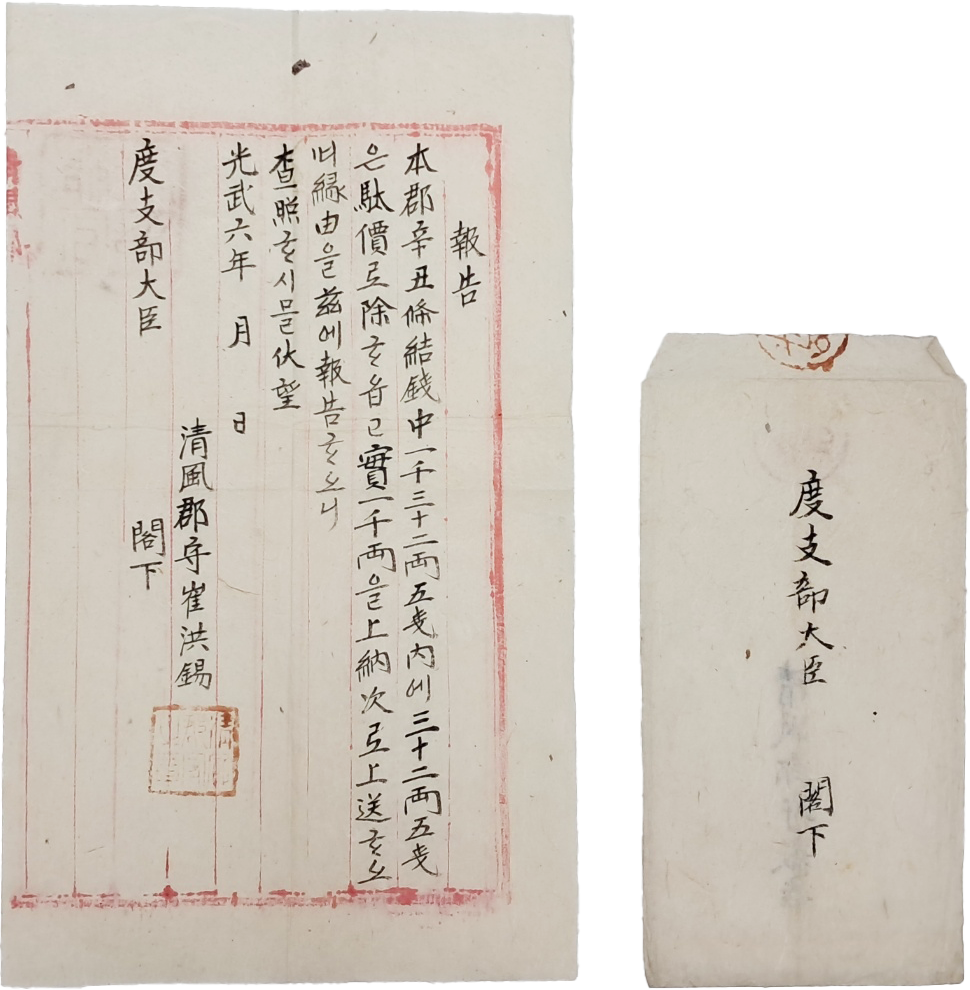 報告
本郡辛丑條結錢中一千三十二両五戔内에三十二両五戔
은駄價로除ᄒᆞ읍고實一千両을上納次로上送ᄒᆞ오
며緣由을玆에報告ᄒᆞ오니
査照ᄒᆞ시믈伏望
光武六年 月 日
清風郡守崔洪錫
度支部大臣 閣下
度支部大臣 閣下